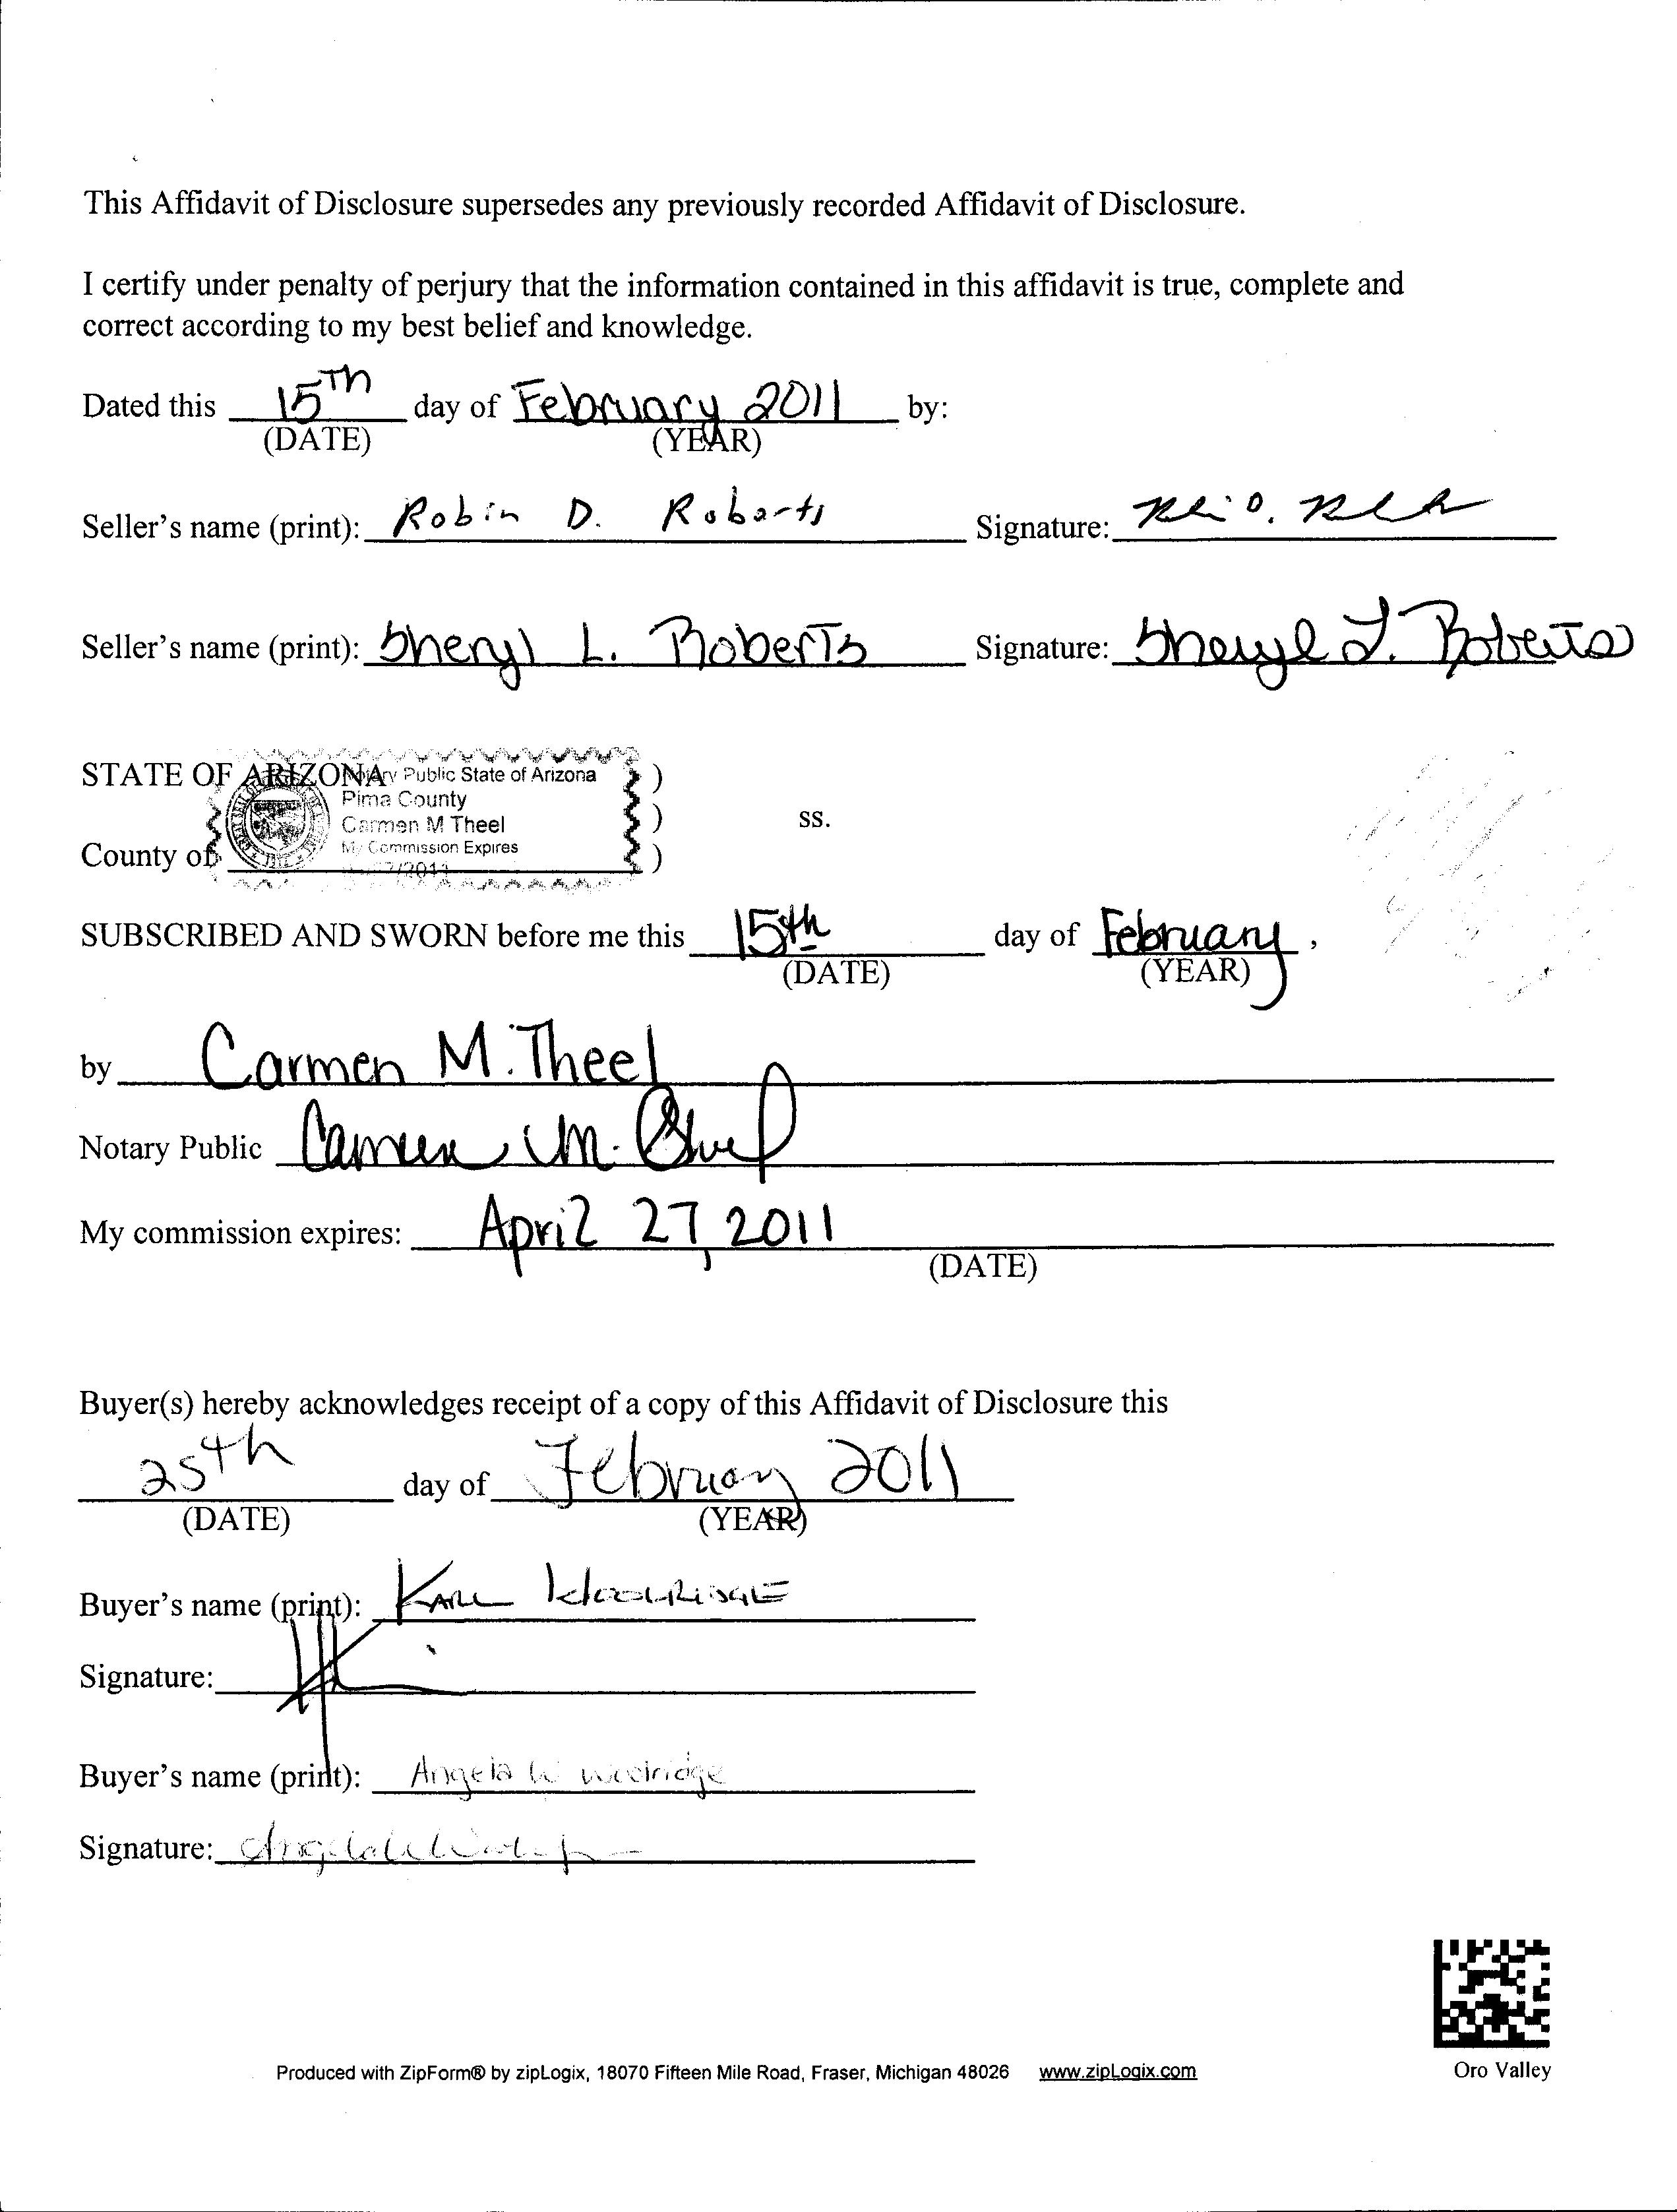 This Affidavit of Disclosure supersedes any previously recorded Affidavit of Disclosure.
I certify under penalty of perjury that the information contained in this affidavit is true, complete and
correct according to my best belief and knowledge.
Dated this 15Th day of February 2011 by:
(DATE) (YEAR)
Seller's name (print): Robin D. Roberts Signature:
Seller's name (print): Sheryl L. Roberts Signature: Sheryl L. Roberts
STATE OF ARIZONA )
Notary Public State of Arizona
Pima County
Carmen M Theel ) ss.
My Commission Expires
County of )
SUBSCRIBED AND SWORN before me this 15th day of February,
(DATE) (YEAR)
by Carmen M. Theel
Notary Public Carmen M. Theel
My commission expires: April 27, 2011
(DATE)
Buyer(s) hereby acknowledges receipt of a copy of this Affidavit of Disclosure this
25th day of February 2011
(DATE) (YEAR)
Buyer's name (print): KARL WOOLRIDGE
Signature:
Buyer's name (print): Angela W Woolridge
Signature:
Produced with ZipForm® by zipLogix, 18070 Fifteen Mile Road, Fraser, Michigan 48026 www.zipLogix.com
Oro Valley